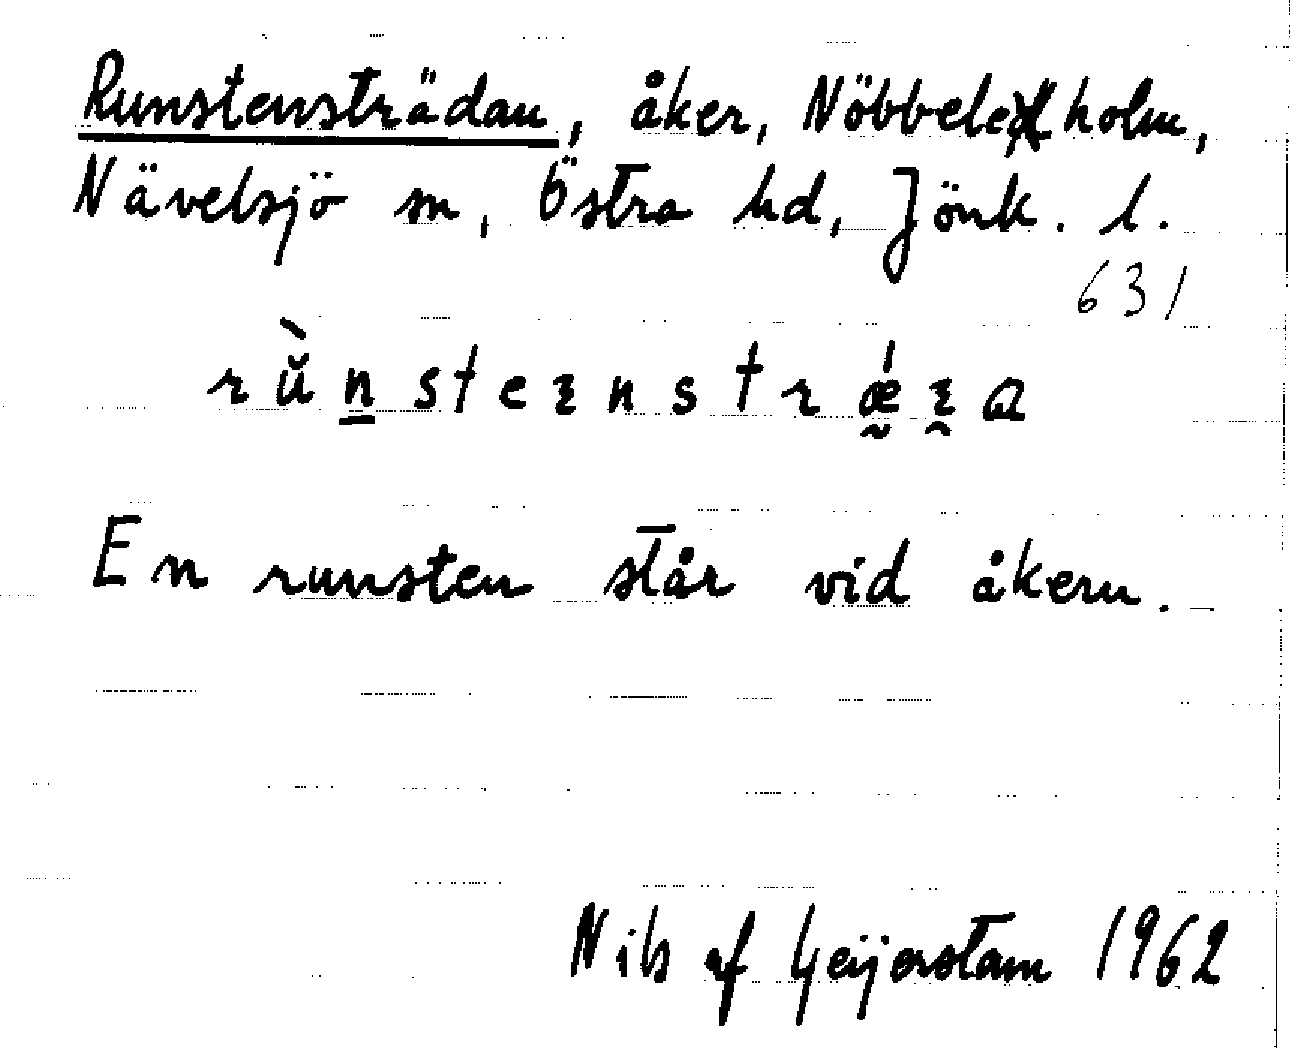 Runstensträdan, åker, Nöbbeleholm,
Nävelsjö sn, Östra hd, Jönk. l.
631
En runsten står vid åkern.
Nils af Geijerstam 1962